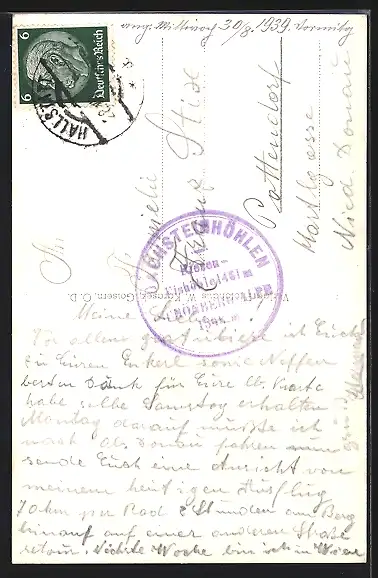 ang. Mittwoch 30/8. 1939. Vormittg
6 6
Deutsches Reich
HALLST
An
Familie
Franz Stix
Pottendorf
Marktgasse
Nied. Donau
DACHSTEINHÖHLEN
Riesen-
Eishöhle 1451 m
SCHÖNBERGALPE
1345 m
Verlag W. Karosek, Goisern, O. D.
Meine Lieben
Vor allem gratuliere ich Euch
zu Euren Enkerl sowie Neffen
besten Dank für Eure lb. Karte
habe selbe Samstag erhalten
Montag darauf mußte ich
nach Donau fahren nun
sende Euch eine Ansicht von
meinem heutigen Ausflug
70 km per Rad 2 Stunden am Berg
hinauf auf einer anderen Straße
retour. Nächste Woche bin ich in Wien